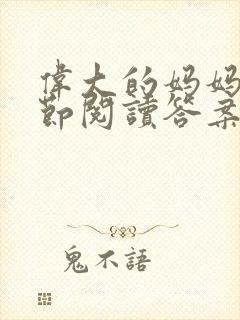 偉大的妈妈
節閱讀答案
鬼不語